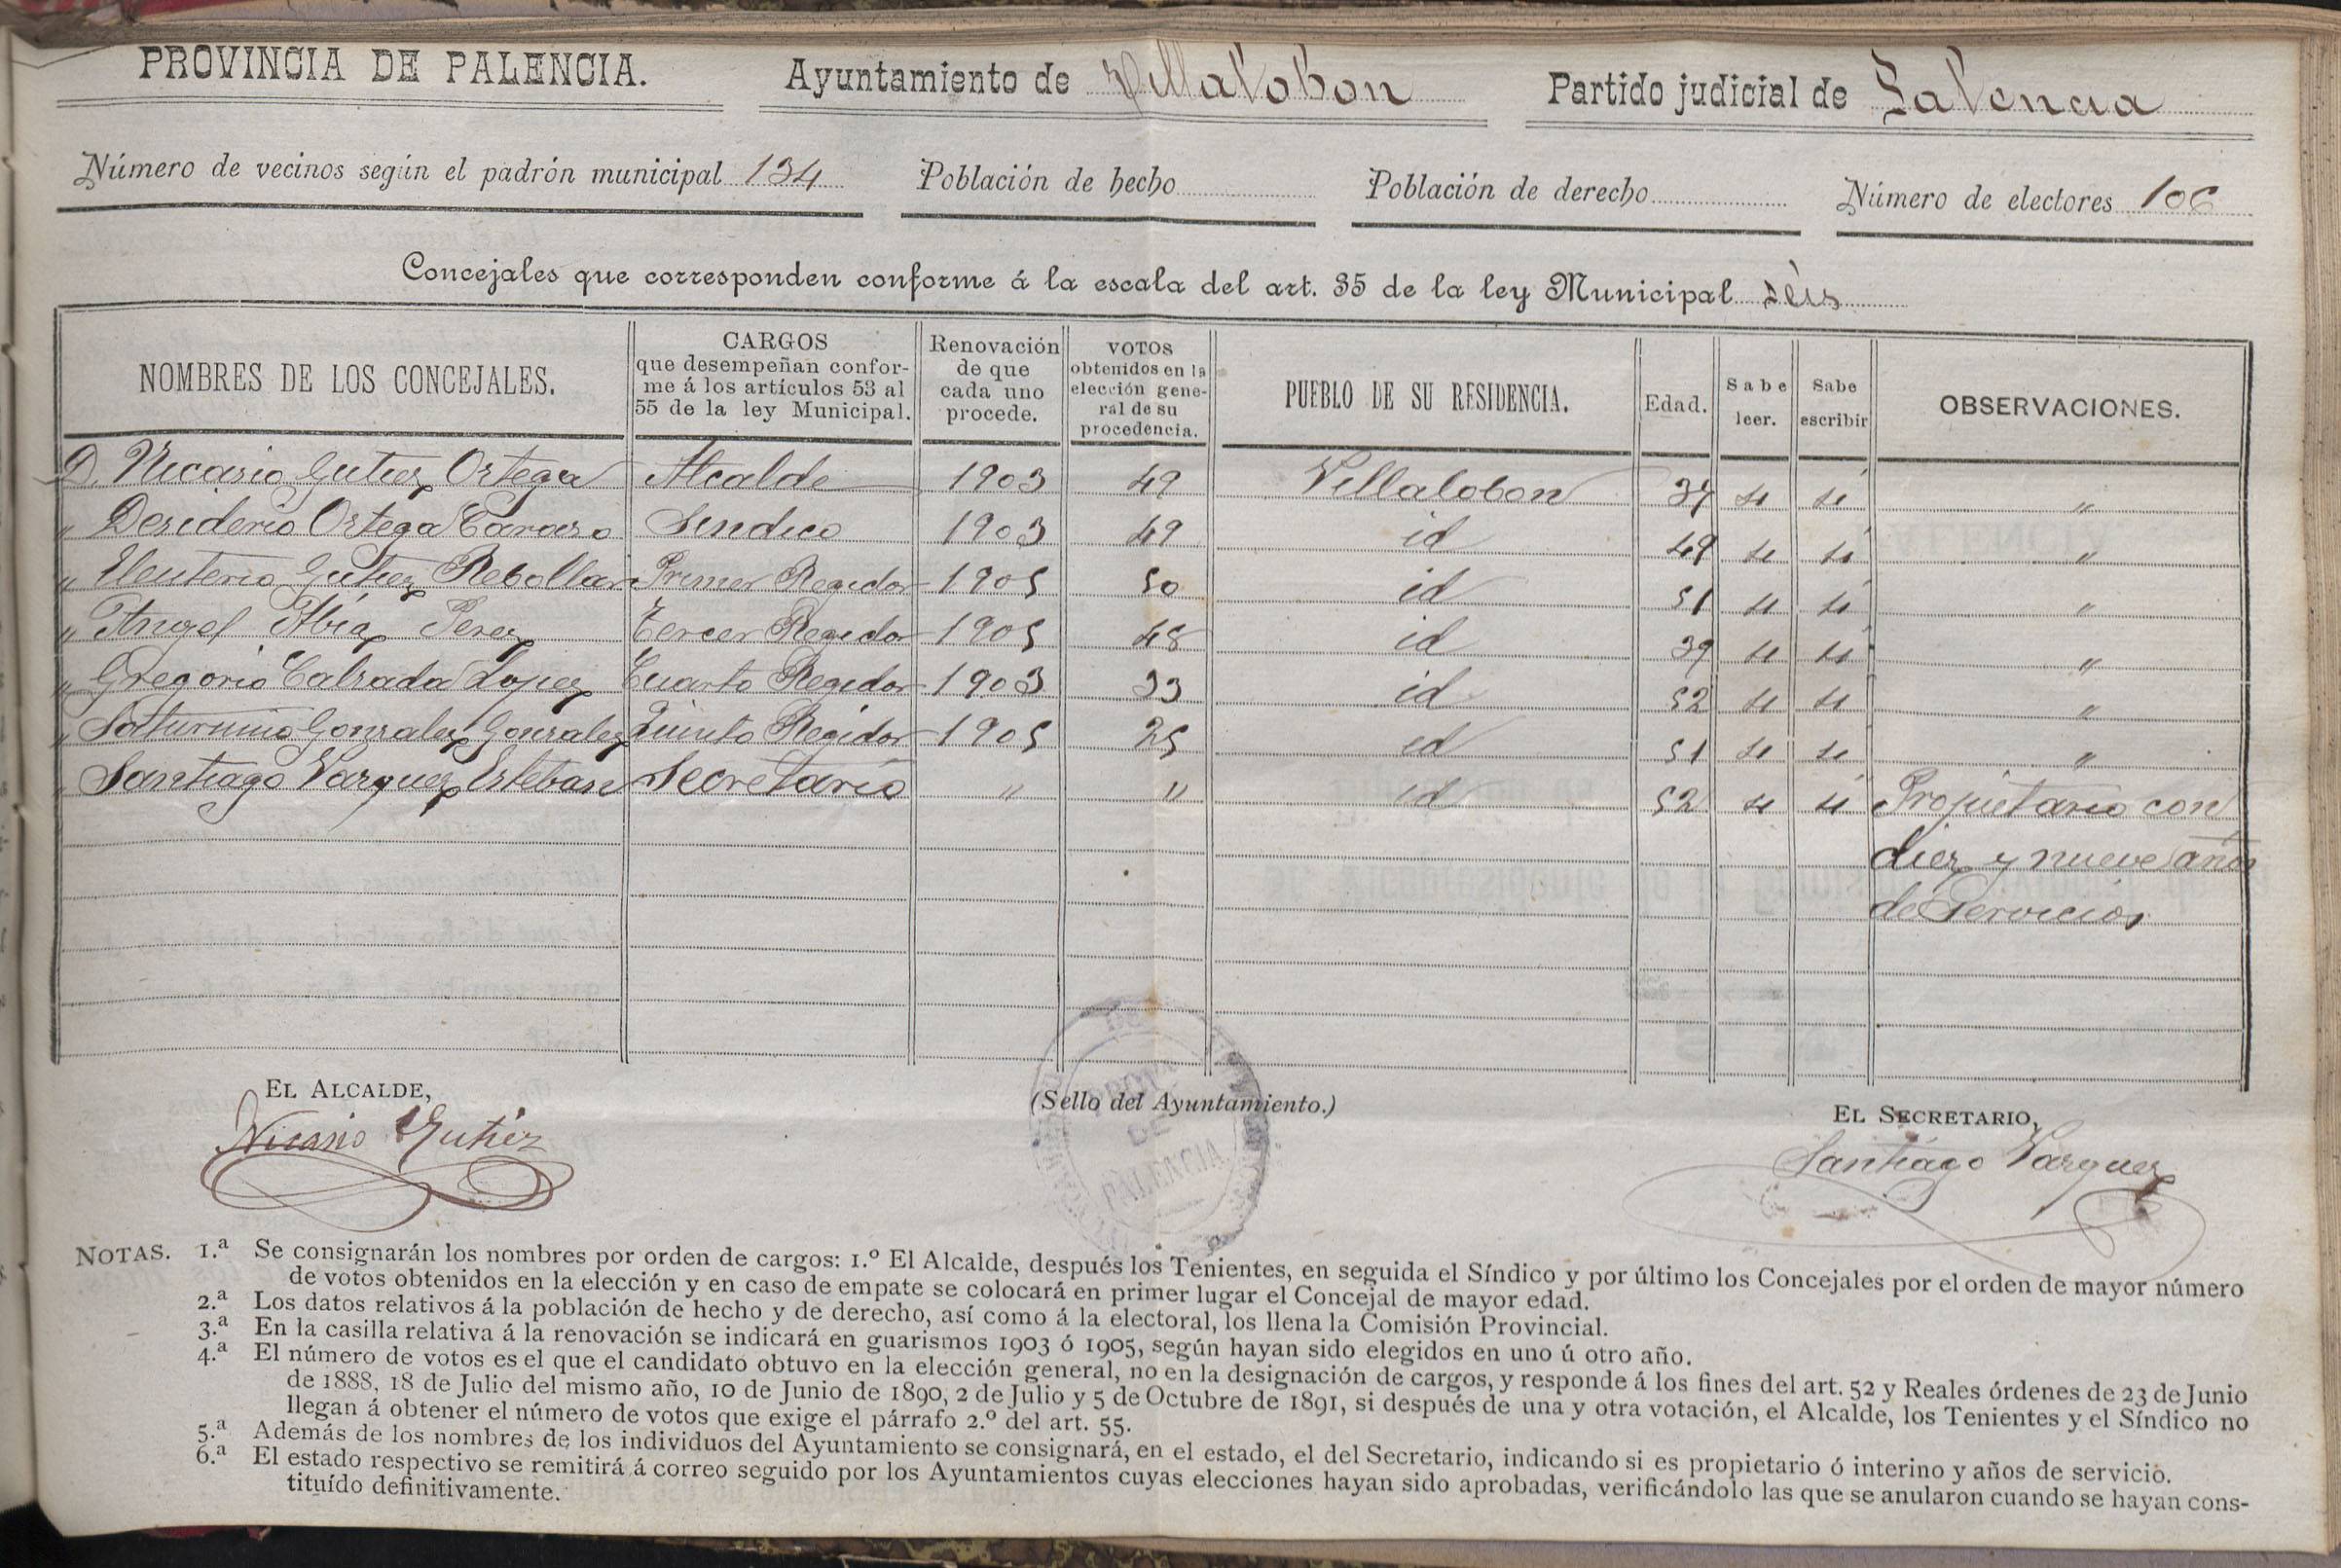 PROVINCIA DE PALENCIA. Ayuntamiento de Villalobon Partido judicial de Palencia
Número de vecinos según el padrón municipal 134 Población de hecho Población de derecho Número de electores 106
Concejales que corresponden conforme á la escala del art. 35 de la ley Municipal seis
NOMBRES DE LOS CONCEJALES.
CARGOS
que desempeñan confor-
me á los artículos 53 al
55 de la ley Municipal.
Renovación
de que
cada uno
procede.
VOTOS
obtenidos en la
elección gene-
ral de su
procedencia.
PUEBLO DE SU RESIDENCIA.
Edad.
Sabe
leer.
Sabe
escribir
OBSERVACIONES.
D. Nicasio Gutiez Ortega Alcalde 1903 49 Villalobon 37 si si "
" Desiderio Ortega Sindico 1903 49 id 49 si si "
" Eleuterio Gutiez Rebollar Primer Regidor 1905 50 id 51 si si "
" Angel Abia Perez Tercer Regidor 1905 48 id 39 si si "
" Gregorio Calzada Lopez Cuarto Regidor 1903 33 id 52 si si "
" Saturnino Gonzalez Gonzalez Quinto Regidor 1905 25 id 51 si si "
" Santiago Vazquez Esteban Secretario " " id 52 si si Propietario con
diez y nueve años
de servicios
EL ALCALDE,
Nicasio Gutiez
(Sello del Ayuntamiento.)
DE
PALENCIA
EL SECRETARIO,
Santiago Vazquez
NOTAS. 1.ª Se consignarán los nombres por orden de cargos: 1.º El Alcalde, después los Tenientes, en seguida el Síndico y por último los Concejales por el orden de mayor número
de votos obtenidos en la elección y en caso de empate se colocará en primer lugar el Concejal de mayor edad.
2.ª Los datos relativos á la población de hecho y de derecho, así como á la electoral, los llena la Comisión Provincial.
3.ª En la casilla relativa á la renovación se indicará en guarismos 1903 ó 1905, según hayan sido elegidos en uno ú otro año.
4.ª El número de votos es el que el candidato obtuvo en la elección general, no en la designación de cargos, y responde á los fines del art. 52 y Reales órdenes de 23 de Junio
de 1888, 18 de Julio del mismo año, 10 de Junio de 1890, 2 de Julio y 5 de Octubre de 1891, si después de una y otra votación, el Alcalde, los Tenientes y el Síndico no
llegan á obtener el número de votos que exige el párrafo 2.º del art. 55.
5.ª Además de los nombres de los individuos del Ayuntamiento se consignará, en el estado, el del Secretario, indicando si es propietario ó interino y años de servicio.
6.ª El estado respectivo se remitirá á correo seguido por los Ayuntamientos cuyas elecciones hayan sido aprobadas, verificándolo las que se anularon cuando se hayan cons-
tituído definitivamente.